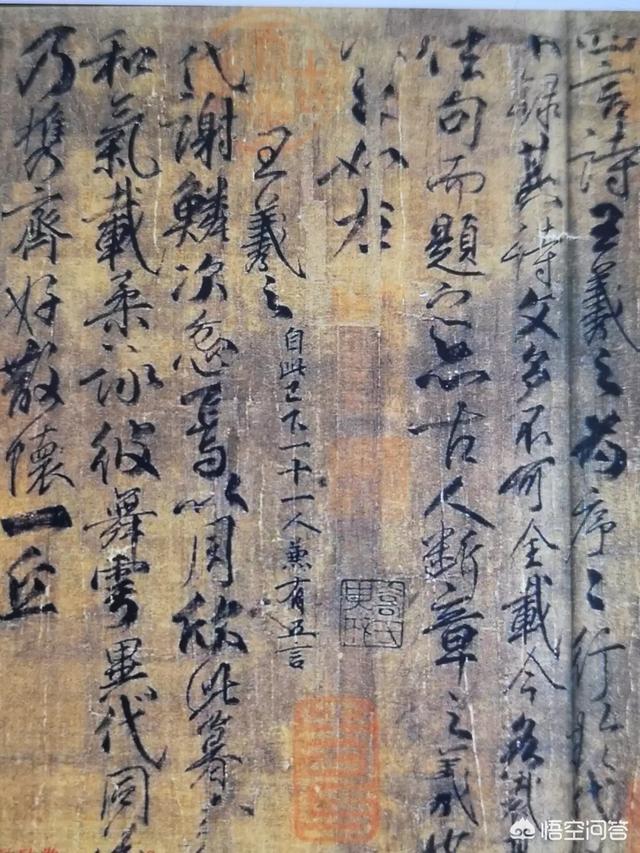 四言詩王羲之為序〻行於代
録其詩文多不可全載今各裁其
佳句而題之亦古人斷章之義也
如左
王羲之 自此已下一十一人兼有五言
代謝鱗次忽焉以周欣此暮
和氣載柔詠彼舞雩異代同
乃攜齊好散懷一丘
悟空问答